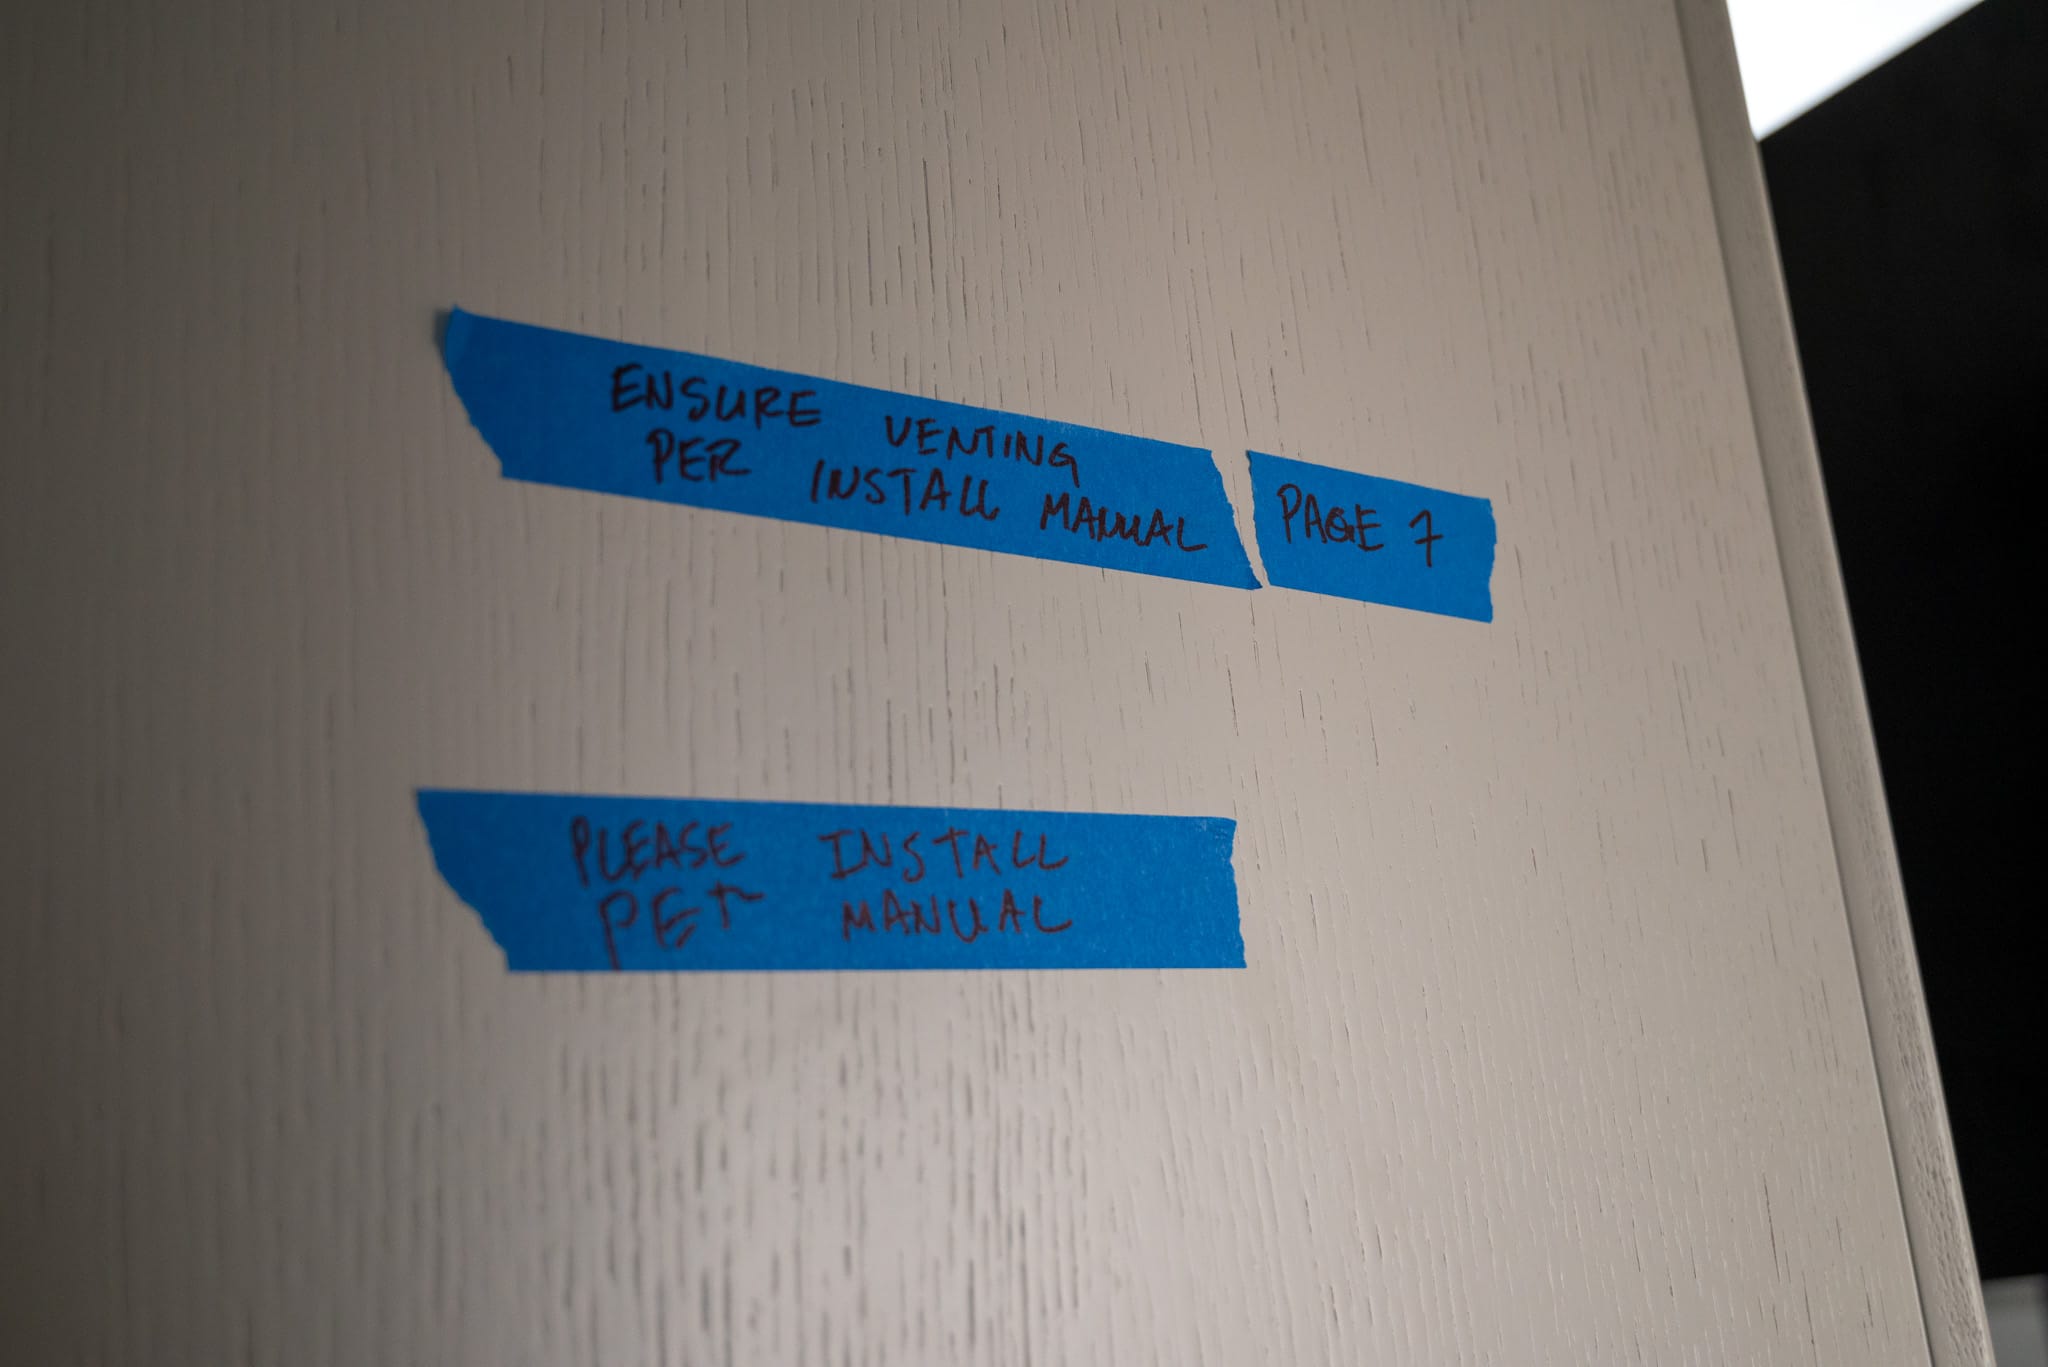 ENSURE VENTING
PER INSTALL MANUAL
PAGE 7
PLEASE INSTALL
PER MANUAL